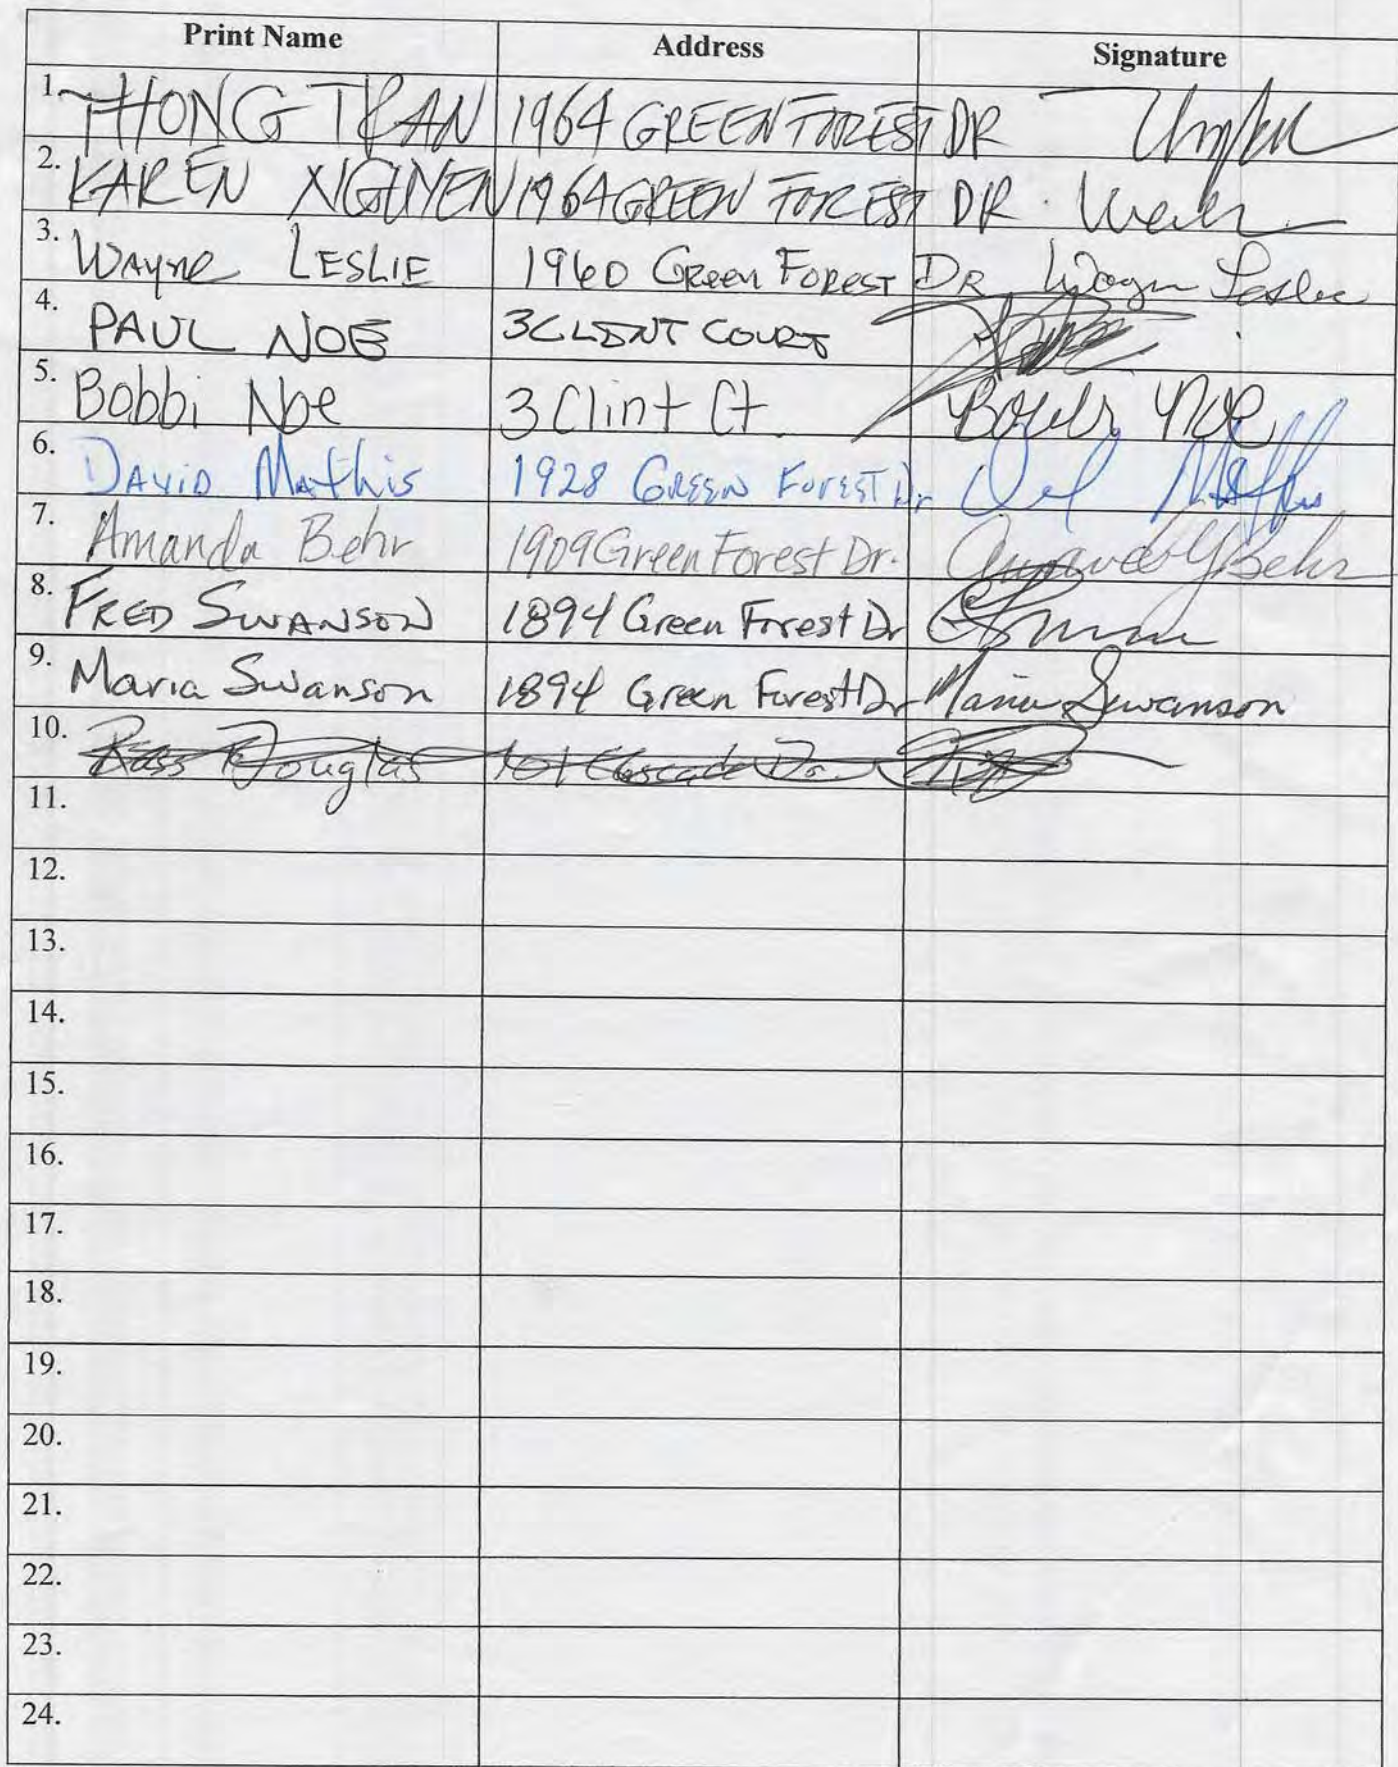 Print Name Address Signature
1. THONG TRAN 1964 GREEN FOREST DR
2. KAREN NGUYEN 1964 GREEN FOREST DR.
3. Wayne LESLIE 1960 Green FOREST DR Wayne Leslie
4. PAUL NOE 3 CLINT COURT
5. Bobbi Noe 3 Clint Ct. Bobbi Noe
6. DAVID Mathis 1928 GREEN FOREST Dr
7. Amanda Behr 1909 Green Forest Dr. Amanda G Behr
8. FRED SWANSON 1894 Green Forest Dr
9. Maria Swanson 1894 Green Forest Dr Maria Swanson
10. Ross Douglas Cascade Dr.
11.
12.
13.
14.
15.
16.
17.
18.
19.
20.
21.
22.
23.
24.